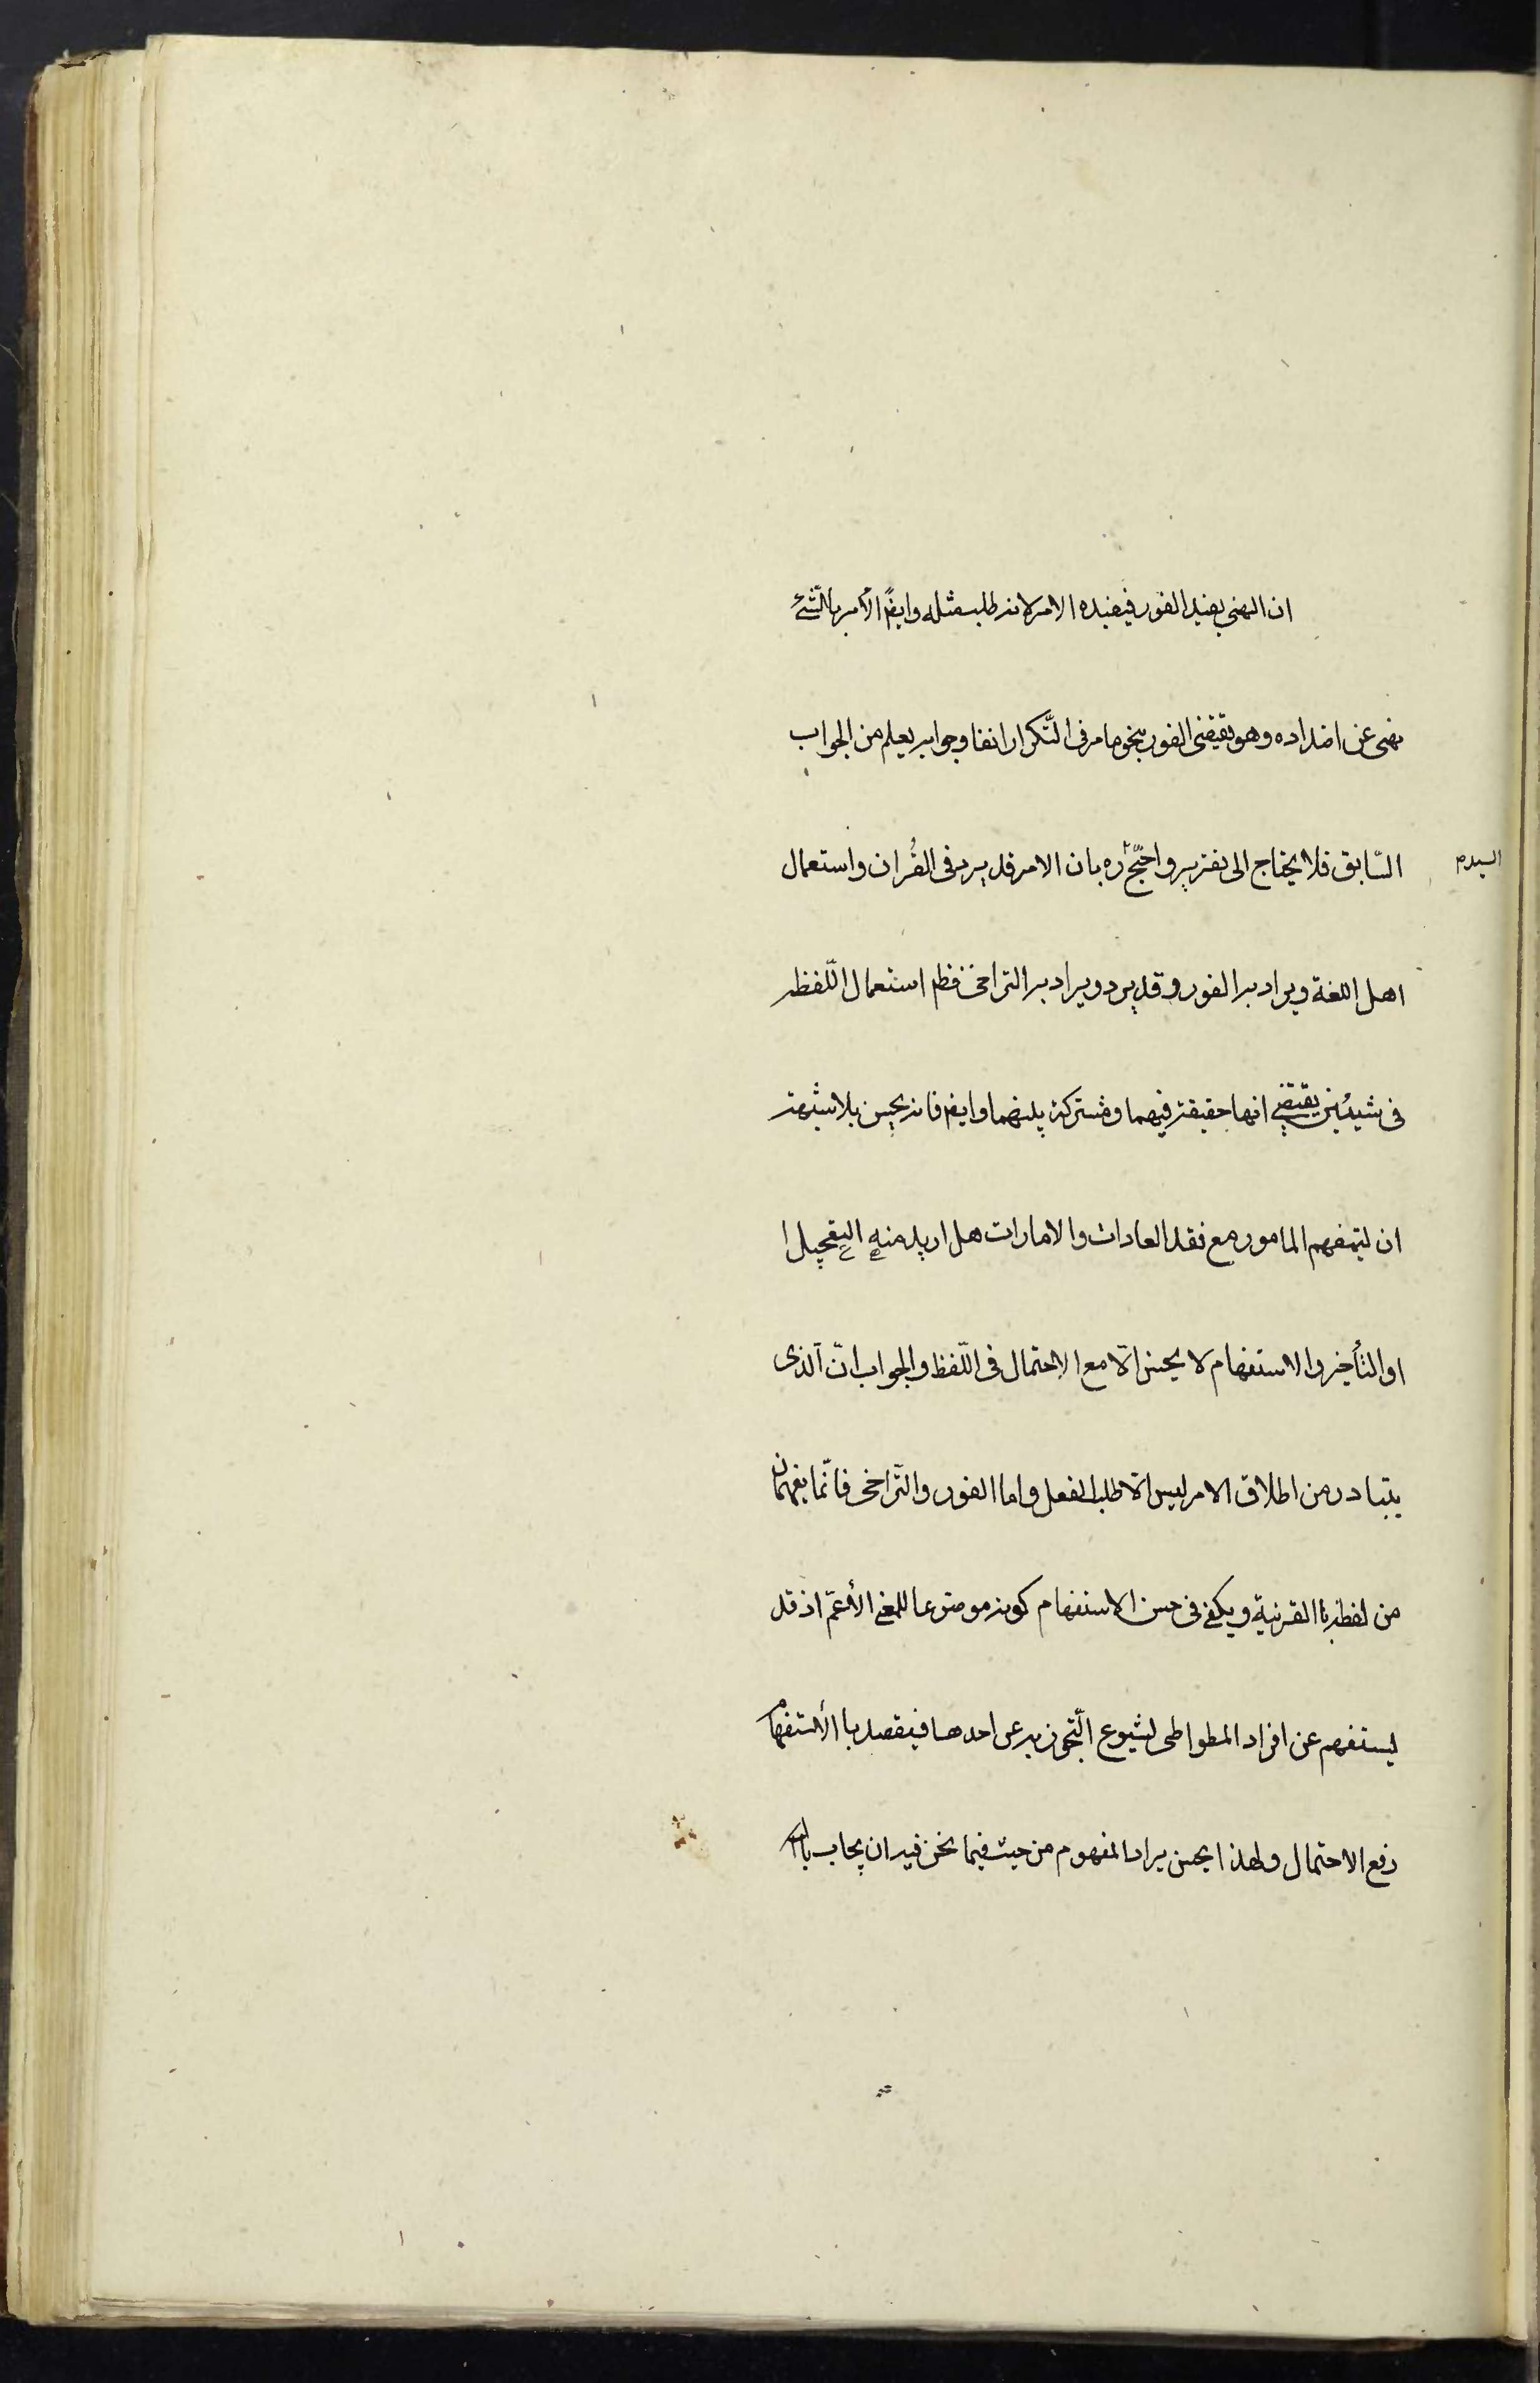 ان النهى يفيد الفور فيفيده الامر لانه طلب مثله وايضًا الأمر بالشئ
نهى عن اضداده وهو يقتضى الفور بنحو ما مر فى التّكرار انفا وجوابه يعلم من الجواب
السّابق فلا يحتاج الى تقريره واحتجّ ره بان الامر قد يرد فى القُران واستعمال
السيد م
اهل اللغة ويراد به الفور وقد يرد ويراد به التراخى فظم استعمال اللّفظه
فى شيئين يقتضى انها حقيقة فيهما ومشتركة بينهما وايضا فانه يحسن بلا شبهة
ان يستفهم المامور مع فقد العادات والامارات هل اريد منه التعجيل ا
او التأخير والاستفهام لا يحسن الّا مع الاحتمال فى اللّفظ والجواب انّ الّذى
يتبادر من اطلاق الامر ليس الّا طلب الفعل واما الفور والتّراخى فانّما يفهمان
من لفظه باالقرنية ويكفى فى حسن الاستفهام كونه موضوعا للمعنى الأعمّ اذ قد
يستفهم عن افراد المطواطى لشيوع التّجوز به عن احدها فيقصد باالأستفهام
رفع الاحتمال ولهذا يحسن يراد المفهوم من حيث فيما نحن فيه ان يجاب